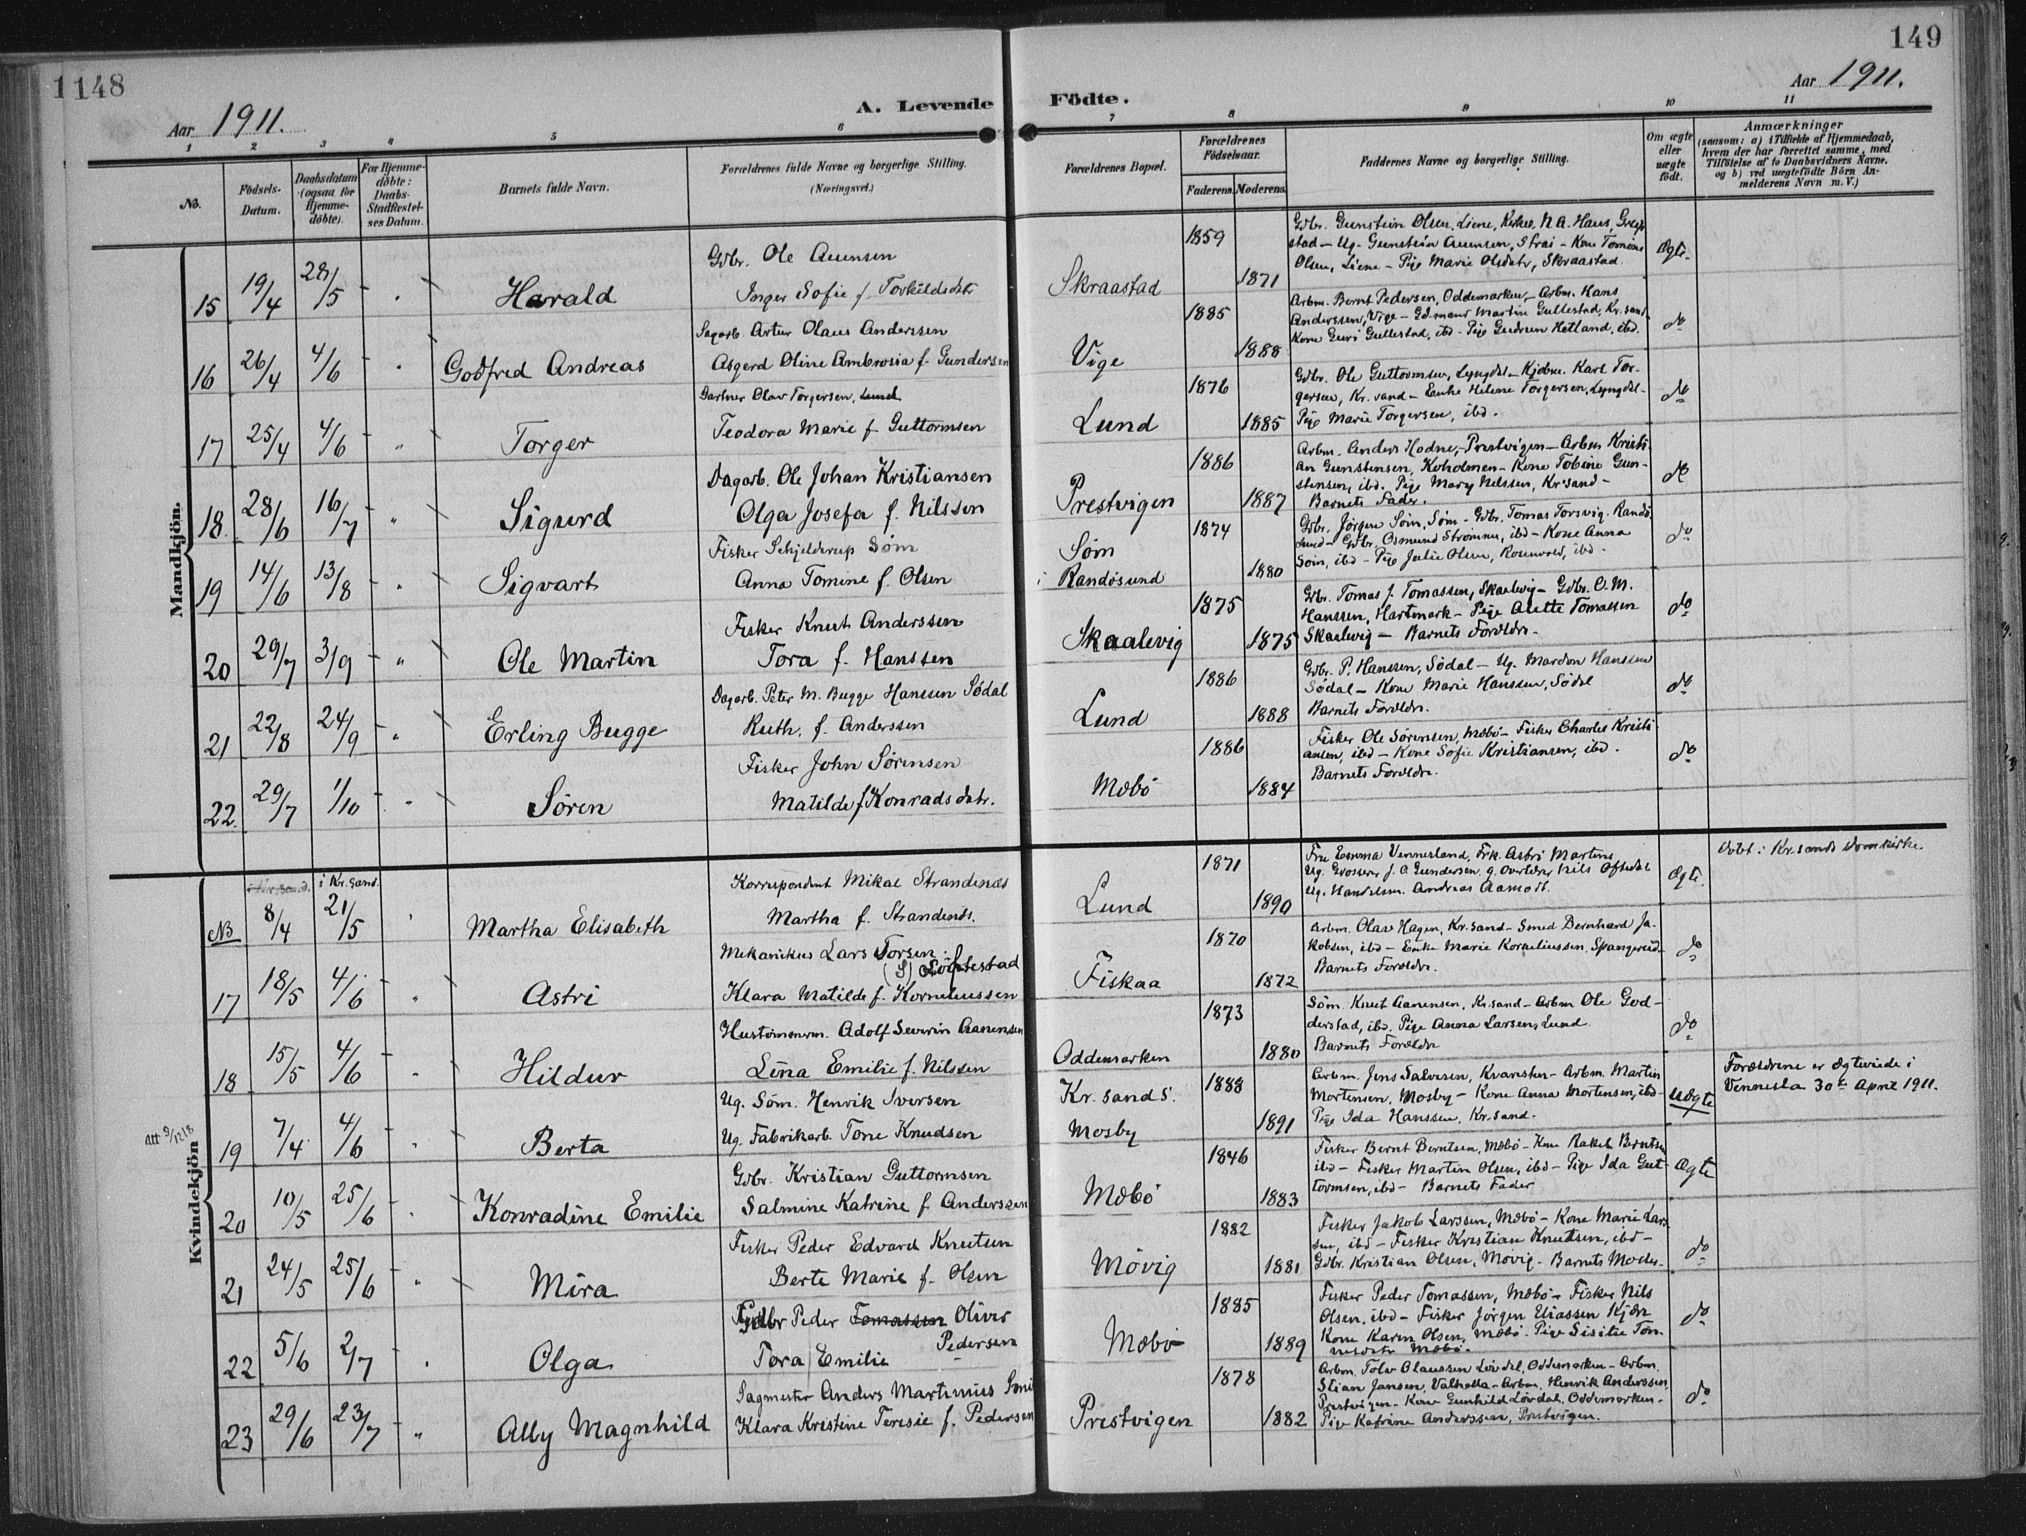 1148
149
Aar 1911.
A. Levende Födte.
Aar 1911.
1 2 3 4 5 6 7 8 9 10 11
No.
Födsels-Datum.
Daabsdatum (ogsaa för Hjemme-döbte).
For Hjemme-döbte: Daabs-Stadfæstel-ses Datum.
Barnets fulde Navn.
Forældrenes fulde Navne og borgerlige Stilling. (Næringsvei.)
Forældrenes Bopæl.
Forældrenes Födselsaar.
Faderens. Moderens.
Faddernes Navne og borgerlige Stilling.
Om ægte eller uægte födt.
Anmærkninger
(saasom: a) i Tilfælde af Hjemmedaab,
hvem der har forrettet samme, med
Tilföielse af to Daabsvidners Navne,
og b) ved uægtefödte Börn An-
melderens Navn m. V.)
Mandkjön.
15 19/4 28/5 - " Harald
Gdbr. Ole Aunensen
Inger Sofie f. Torkildsdtr
Skraastad 1859 1871
Gdbr. Gunstein Olsen, Liene, Kirkes. N. A. Haus,
stad - Ug. Gunstein Aunensen, Strai - Kone Tomine
Olsen, Liene - Pige Marie Olsdatr, Skraastad
Ægte.
16 26/4 4/6 - " Godfred Andreas
Sagarb. Artur Olaus Anderssen
Asgerd Oline Ambrosia f. Gunderssen
Vige 1885 1888
Arbm. Bernt Pedersen, Oddemarken - Arbm. Hans
Anderssen, Vige - Gd.mand Martin Gullestad, Kr.sand
Kone Guri Gullestad, ibd - Pige Gudrun Hetland, ibd.
do
17 25/4 4/6 - " Torger
Gartner Olav Torgersen, Lund
Teodora Marie f. Guttormsen
Lund 1876 1885
Gdbr. Ole Guttormsen, Lyngdal - Kjøbm. Karl Tor-
gersen, Kr.sand - Enke Helene Torgersen, Lyngdal -
Pige Marie Torgersen, ibd.
do
18 28/6 16/7 - " Sigurd
Dagarb. Ole Johan Kristiansen
Olga Josefa f. Nilssen
Prestvigen 1886 1887
Arbm. Anders Hodne, Prestvigen - Arbm Kristi-
an Gunstensen, Koholmen - Kone Tobine Gun-
stensen, ibd. Pige Mary Nilssen, Kr.sand -
Barnets Fader.
do
19 14/6 13/8 - " Sigvart
Fisker Schjelderup Søm
Anna Tomine f. Olsen
Søm i Randøsund 1874 1880
Gdbr. Jörgen Søm, Søm - Gdbr. Tomas Torsvig. Randø
sund - Gdbr. Osmund Strømme, ibd - Kone Anna
Søm, ibd - Pige Julie Olsen, Rosenvold, ibd.
do
20 29/7 3/9 - " Ole Martin
Fisker Knut Anderssen
Tora f. Hanssen
Skaalevig 1875 1875
Gdbr. Tomas J. Tomassen, Skaalevig - Gdbr. O. M.
Hanssen, Hartmark - Pige Anette Tomassen
Skaalevig - Barnets Forældre.
do
21 22/8 24/9 " Erling Bugge
Dagarb. Peter M. Bugge Hansen Södal
Ruth. f. Anderssen
Lund 1886 1888
Gdbr. P. Hanssen, Södal - Ug. Mardon Hanssen
Södal - Kone Marie Hanssen, Södal
Barnets Forældre.
do
22. 29/7 1/10 - " Sören
Fisker John Sørensen
Matilde f. Konradsdatr.
Mæbö 1886 1884
Fisker Ole Sørensen, Mæbö - Fisker Charles Kristi-
ansen, ibd - Kone Sofie Kristiansen, ibd.
Barnets Forældre.
do
Kvindekjön
i Kr.sand. i Kr.sand.
NB 8/4 21/5 " Martha Elisabeth
Korrespondent Mikal Strandenæs
Martha f. Strandenæs.
Lund 1871 1890
Fru Emma Vennesland, Frk. Astri Martens
Ug. Grosserer J. O. Gundersen, g. Overlærer Nils Oftedal
Ug. Handelsm. Andreas Aamodt.
Ægte.
Döbt i Kr.sands Domkirke.
17 18/5 4/6 - " Astri
Mekanikus Lars Torsen
(S) Løgtestad
Klara Matilde f. Korneliussen
Fiskaa 1870 1872
Arbm. Olav Hagen, Kr.sand - Smed Bernhard Ja-
kobsen, ibd - Enke Marie Korneliussen, Spangereid -
Barnets Forældre.
do
18 15/5 4/6 - " Hildur
Hustömmerm. Adolf Severin Aanensen
Lina Emilie f. Nilssen
Oddemarken 1873 1880
Søm. Knut Aanensen, Kr.sand - Arbm Ole God-
derstad, ibd. Pige Anna Larsen, Lund
Barnets Forældre
do
att 9/12 18
19 7/4 4/6 - " Berta
Ug. Søm. Henrik Iversen
Ug. Fabrikarb. Tone Knudsen
Kr.sand S.
Mosby 1888 1891
Arbm. Jens Salvesen, Kvarsten - Arbm. Martin
Mortensen, Mosby - Kone Anna Mortensen, ibd -
Pige Ida Hanssen, Kr.sand.
uægte
Forældrene er ægteviede i
Vennesla 30te April 1911.
20 10/5 25/6 - " Konradine Emilie
Gdbr. Kristian Guttormsen
Salmine Katrine f. Anderssen
Mæbö 1846 1883
Fisker Bernt Berntsen, Mæbö - Kone Rakel Berntsen
ibd - Fisker Martin Olsen, ibd - Pige Ida Gut-
tormsen, ibd - Barnets Fader
Ægte
21 24/5 25/6 - " Mira
Fisker Peder Edvard Knutsen
Berte Marie f. Olsen
Mövig 1882 1881
Fisker Jakob Larssen, Mæbö - Kone Marie Lars-
sen, ibd - Fisker Kristian Knutsen, ibd -
Gdbr. Kristian Olsen, Mövig - Barnets Moder -
do
22 5/6 2/7 " Olga
Gdbr Peder Tomassen Oliver
Pedersen
Tora Emilie
Mæbö 1885 1889
Fisker Peder Tomassen, Mæbö - Fisker Nils
Olsen, ibd - Fisker Jörgen Eliassen Kjær
Kone Karen Olsen, Mæbö - Pige Sisilie Tom-
Mæbö.
do
23 29/6 23/7 - " Ally Magnhild
Sagmester Anders Martinius
Klara Kristine Teresie f. Pedersen
Prestvigen 1878 1882
Arbm. Tolv Olaussen Lövdal, Oddemarken - Arbm.
Stian Jansen, Valhalla - Arbm. Henrik Anderssen,
Prestvigen - Kone Gunhild Lövdal, Oddemarken -
Pige Katrine Anderssen, Prestvigen.
do